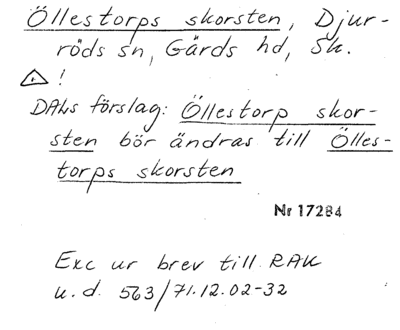 Öllestorps skorsten, Djur-
röds sn, Gärds hd, Sk.
!
DALs förslag: Öllestorp skor-
sten bör ändras till Ölles-
torps skorsten
Nr 17284
Exc ur brev till RAK
u.d. 563/71.12.02-32